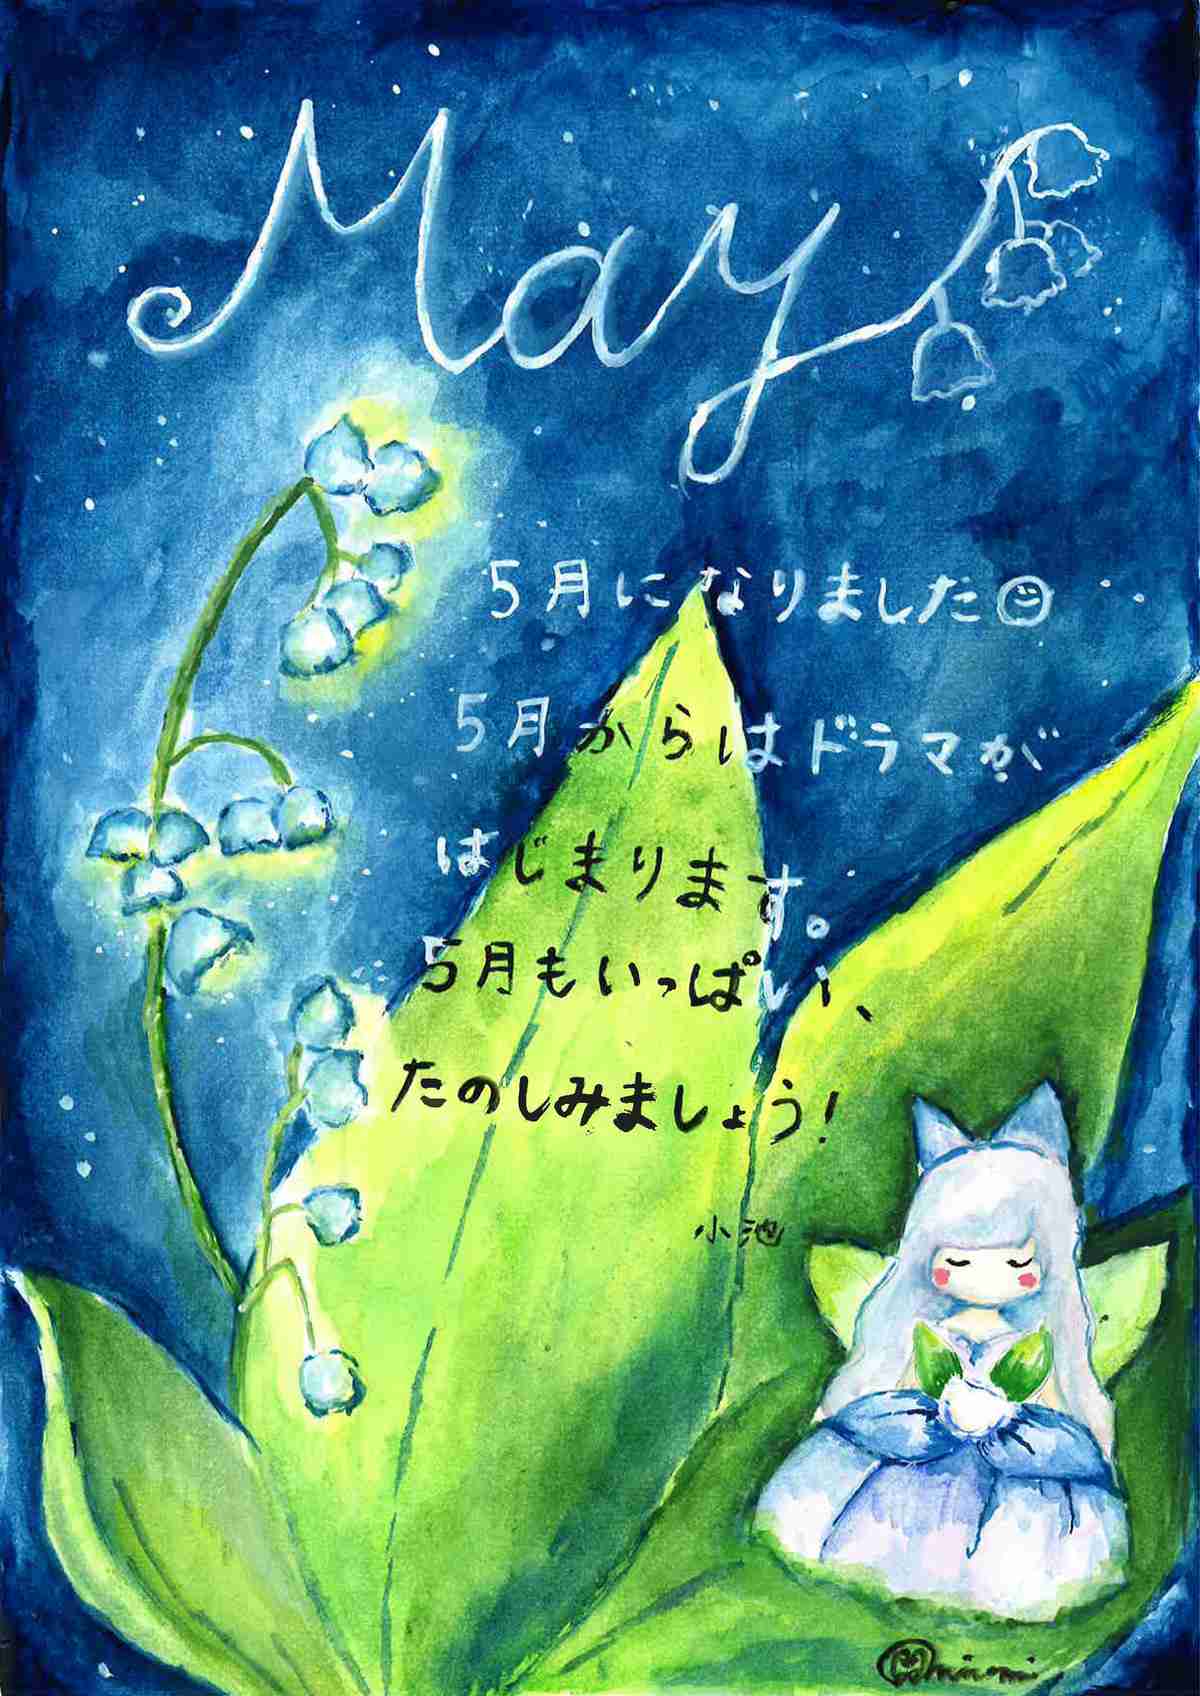 May
5月になりました☺
5月からはドラマが
はじまります。
5月もいっぱい、
たのしみましょう!
小池
minami